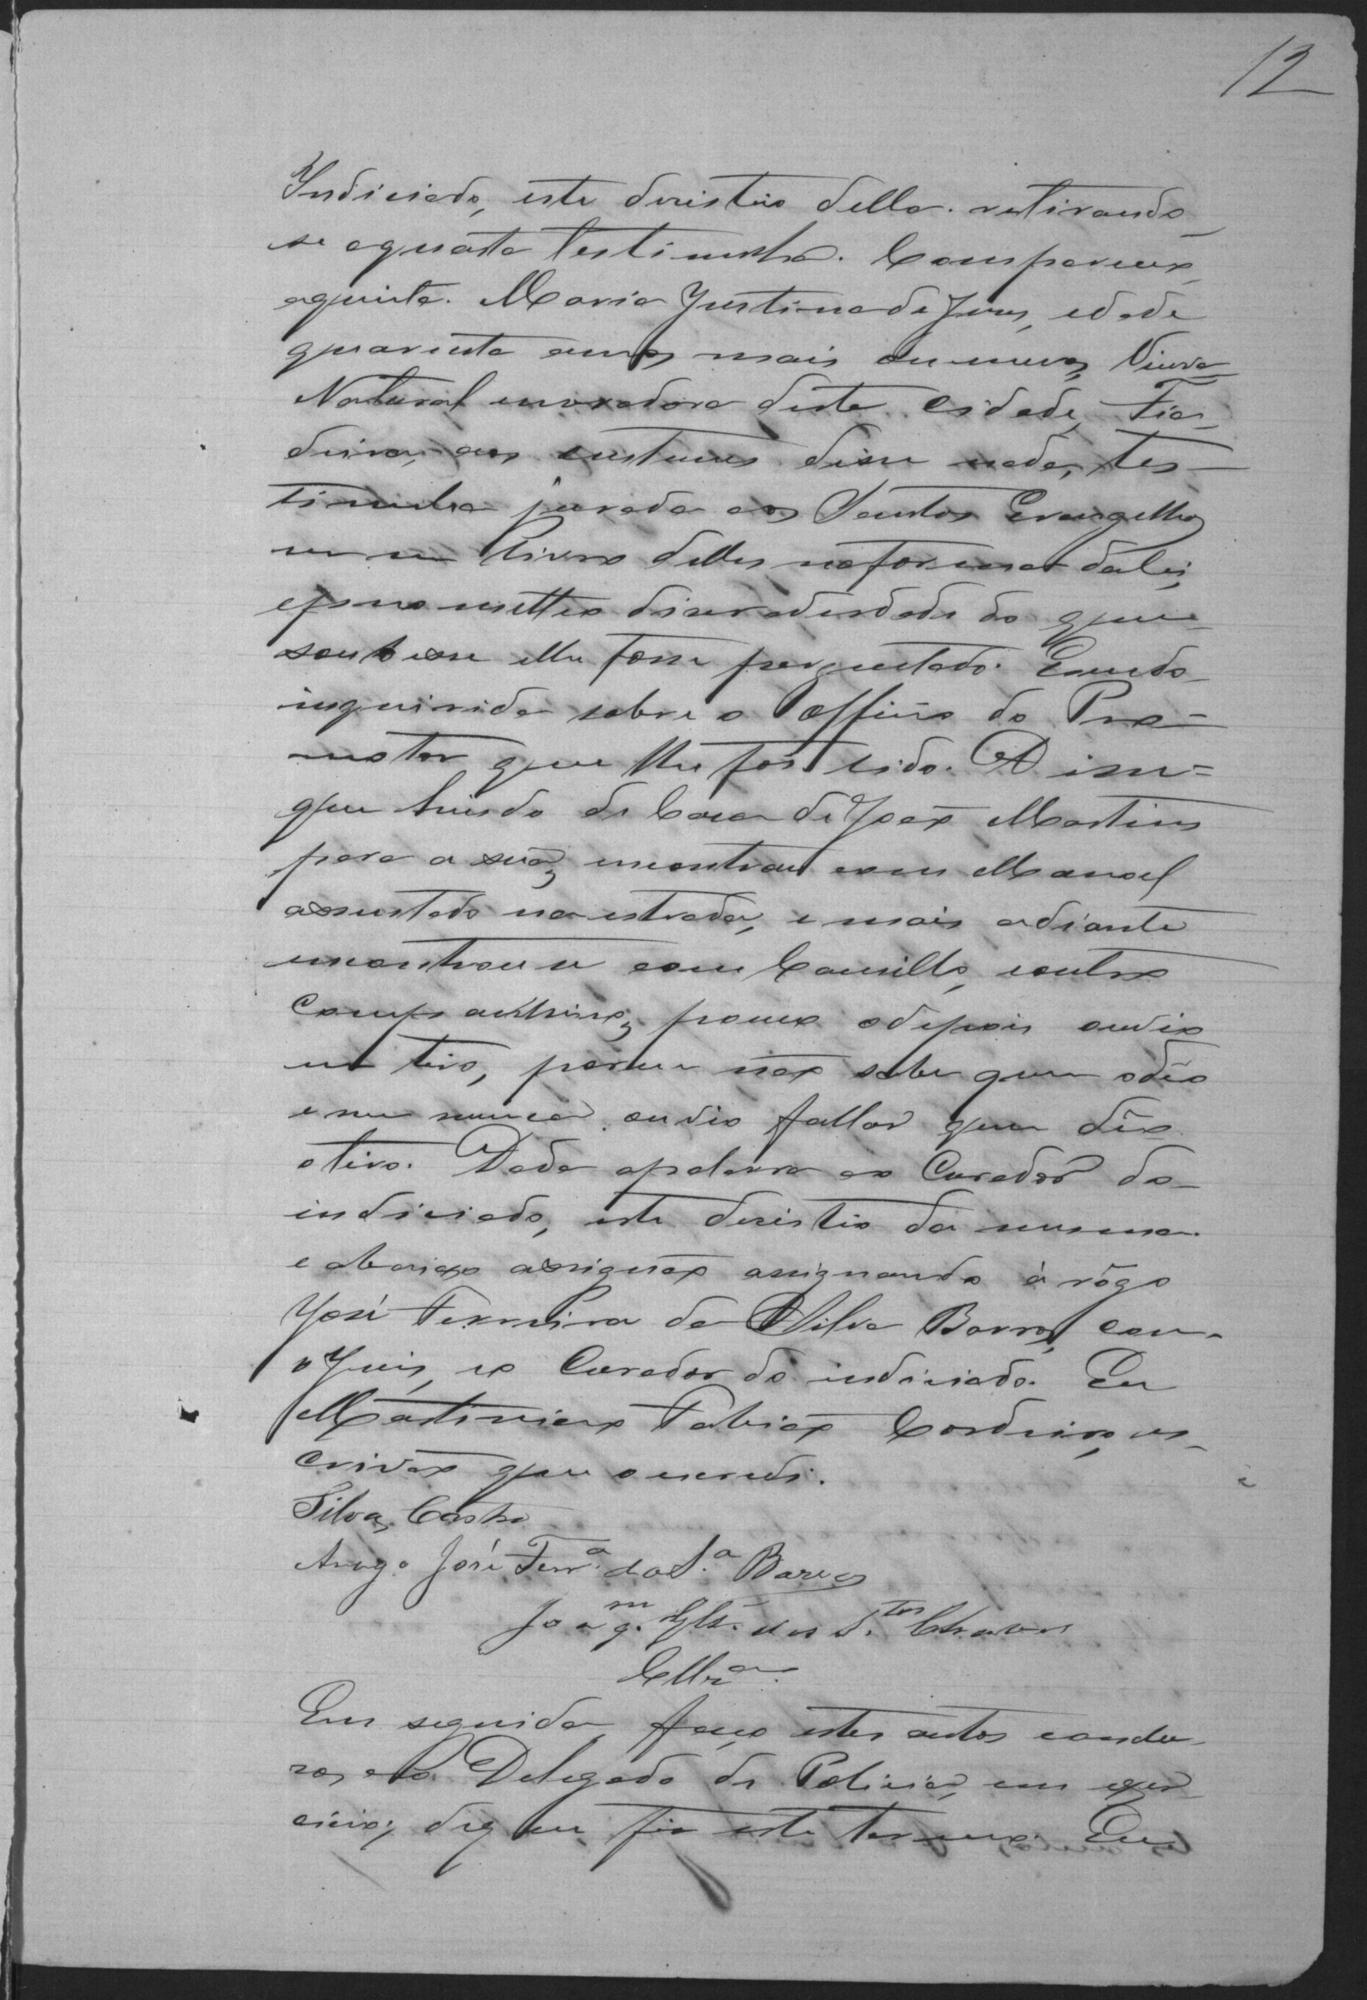 12
Indiciado, este desistio della. retirando
se aquarta testimunha. Compareceu
aquinta. Maria Justina de Jesus, edade
quarenta annos mais ou menos, Viuva
Natural moradora desta Cidade, Fian
deira, aos custumes disse nada, tes-
timunha jurada aos Santos Evangelhos
em um Livro delles na forma da lei,
e prometteo diser averdade do que
soubesse elhe fosse perguntado. Esendo
inquirida sobre o officio do Pro=
motor que lhe foi lido. Disse=
que hindo de Casa de João Martins
para a sua, encontrou com Manoel
assustado na estrada, e mais adiante
encontrou se com Camillo, e outros
Companheiros, pouco adepois ouvio
um tiro, porem não sabe quem o dêo
e nem nunca ouvio fallar quem dêo
otiro. Dada apalavra ao Curador do
indiciado, este desistio da mesma
e abaixo assignão assignando à rôgo
José Ferreira da Silva Barros, com
o Juis, eo Curador do indiciado. Eu
Martiniano Fabião Cordeiro, es-
crivão que o escrevi.
Silva Castro
Arogo José Ferr.ª da S.ª Barros
Joaq.m dos S.tos Chaves
Cllus.am
Em seguida faço estes autos conclu
sos ao Delegado de Policia, em exer
cicio; do que fiz este termo. Eu